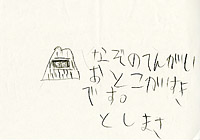 なぞのてんがい
おとこがすき
です。
としまさ